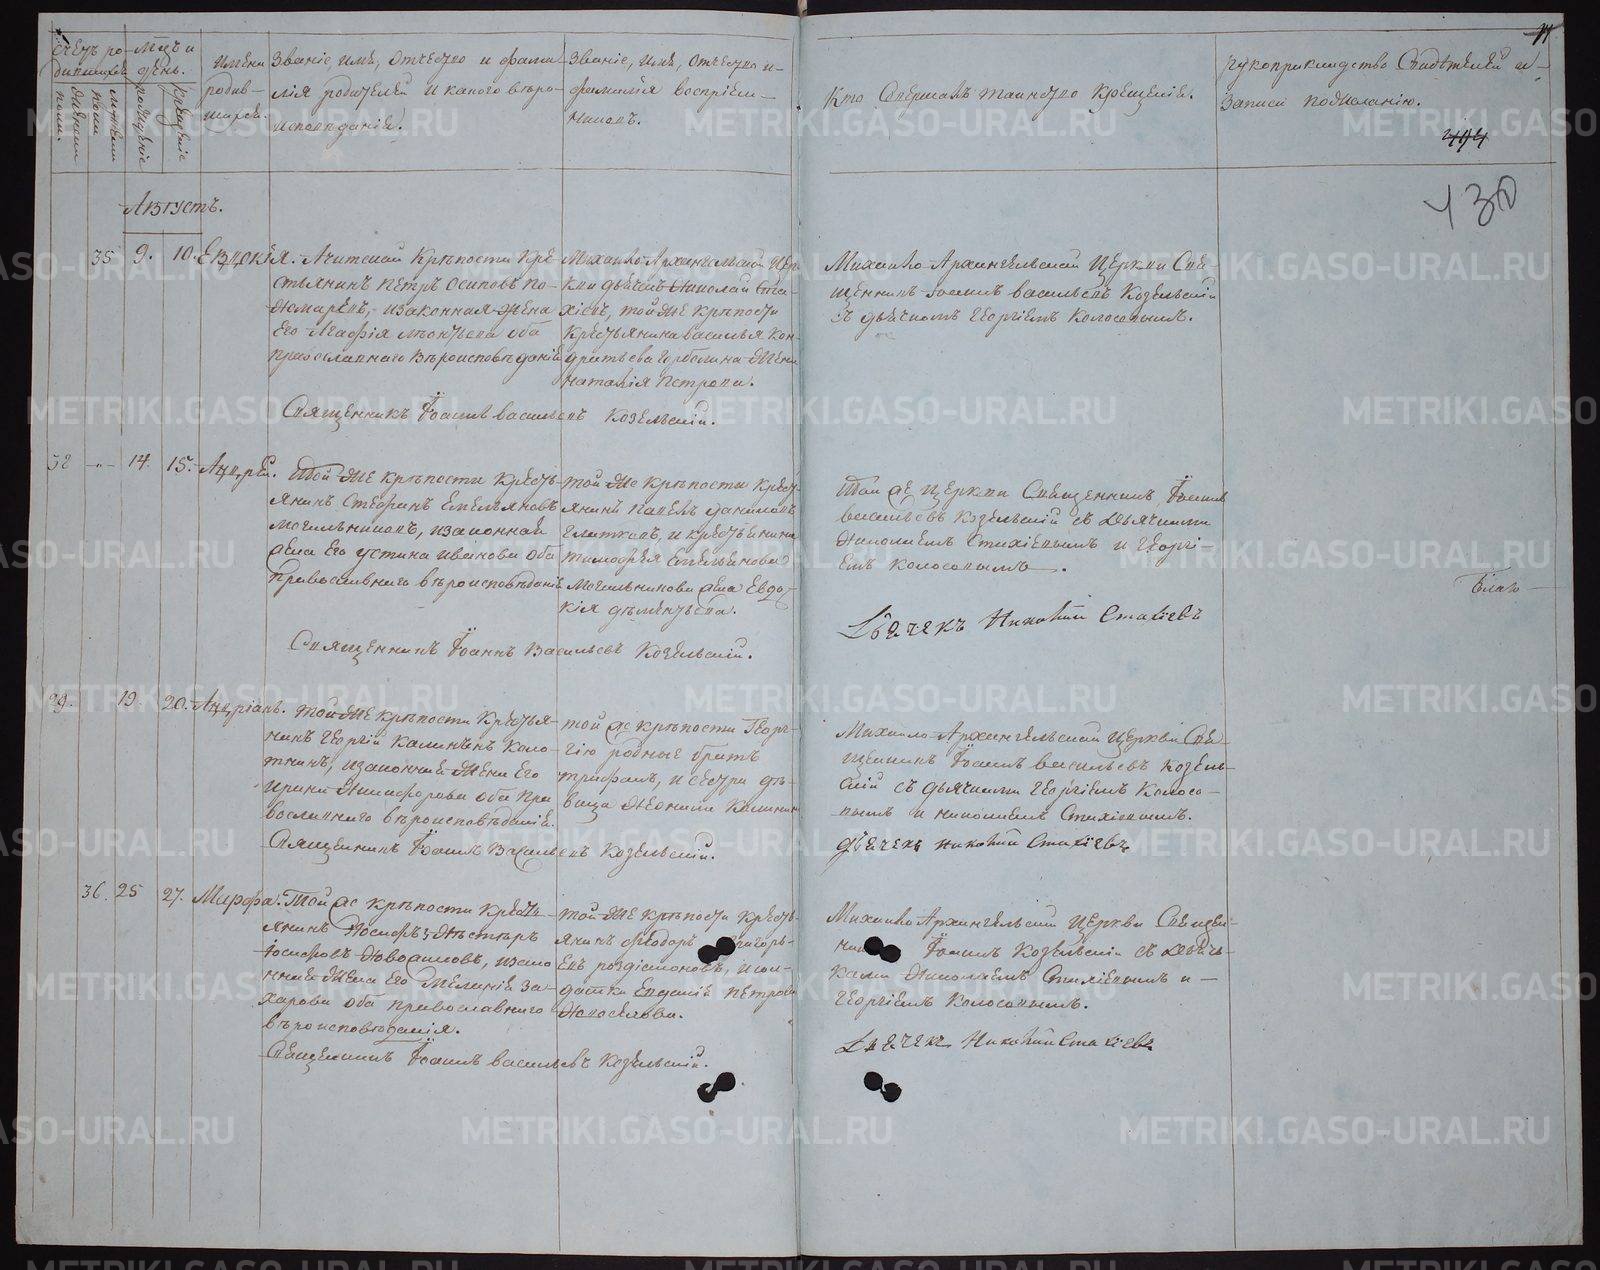 Счетъ ро-
дившихся
мужеска
женска
Мѣсяцъ и
день.
рожденіе
крещеніе
Имена
родив-
шихся.
Званіе, имѣ, отчество и фами-
лія родителей и какого вѣро-
исповѣданія.
Званіе, имѣ, отчество и
фамилія воспріем-
никовъ.
Кто совершалъ таинство крещенія.
рукоприкладство свидѣтелей
записи по желанію.
430
Августъ.
35 9. 10. Евдокія.
Ачитской крѣпости кре-
стьянинъ Петръ Осиповъ По-
номаревъ, и законная жена
его Агафія Леонтьева оба
православнаго вѣроисповѣданія
Михаило-Архангельской цер-
кви дьячекъ Николай Ста-
хіевъ, той же крѣпости
крестьянина Василья Кон-
дратьева жена
Наталія Петрова.
Михаило-Архангельской церкви Свя-
щенникъ Іоаннъ Васильевъ Козельскій
съ дьячкомъ Георгіемъ Колосовымъ.
Священникъ Іоаннъ Васильевъ Козельскій.
14. 15. Андрей.
Той же крѣпости кресть-
янинъ Стефанъ Емельяновъ
Могильниковъ, и законная
жена его Устина Иванова оба
православнаго вѣроисповѣданія
той же крѣпости кресть-
янинъ Павелъ Даниловъ
Глатковъ, и крестьянина
Тимофея Емельянова
Могильникова жена Евдо-
кія Дементьева.
Той же церкви Священникъ Іоаннъ
Васильевъ Козельскій съ дьячками
Николаемъ Стахіевымъ и Георгі-
емъ Колосовымъ.
Дьячекъ Николай Стахіевъ
Благо
Священникъ Іоаннъ Васильевъ Козельскій.
19 20. Андріанъ.
Той же крѣпости крестья-
нинъ Георгій Калинынъ
законная жена его
Ирина Никифорова оба пра-
вославнаго вѣроисповѣданія.
той же крѣпости Геор-
гію родные братъ
Трифанъ, и сестра дѣ-
вица Неонила Калинины
Михаило-Архангельской церкви Свя-
щенникъ Іоаннъ Васильевъ Козель-
скій съ дьячками Георгіемъ Колосо-
вымъ и Николаемъ Стахіевымъ.
Дьячекъ Николай Стахіевъ
Священникъ Іоаннъ Васильевъ Козельскій.
36. 25 27. Марфа.
Той же крѣпости кресть-
янинъ
Іосифовъ Новоселовъ, и зако
нная жена его Меланія За-
харова оба православнаго
вѣроисповѣданія.
той же крѣпости кресть-
янинъ Федоръ Григорь-
евъ и сол-
датка Евдокія Петрова
Новоселова.
Михаило-Архангельской церкви Священ-
никъ Іоаннъ Козельскій съ дьяч-
ками Николаемъ Стахіевымъ и
Георгіемъ Колосовымъ.
Дьячекъ Николай Стахіевъ
Священникъ Іоаннъ Васильевъ Козельскій.
METRIKI.GASO-URAL.RU